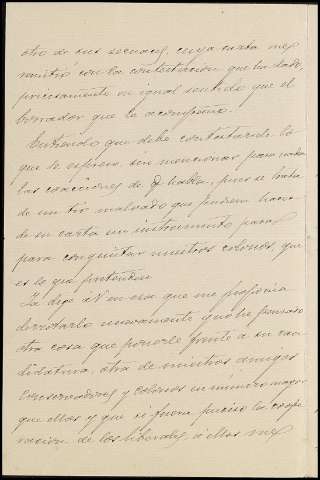 otro de sus secuaces, cuya carta me
remitió con la contestación que ha dado,
precisamente en igual sentido que el
borrador que le acompaño.
Entiendo que debe contestarle lo
que le expreso, sin mencionar para nada
las coacciones de q habla, pues se trata
de un tío malvado que pudiera hacer
de su carta un instrumento para
para conquistar nuestros colonos, que
es lo que pretenden
Ya dije a V en esa que me proponía
derrotarlo nuevamente y no he pensado
otra cosa que ponerle frente a su can
didatura, otra de nuestros amigos
conservadores y colonos en número mayor
que ellos y que si fuera preciso la coope
ración de los liberales, a ellos me